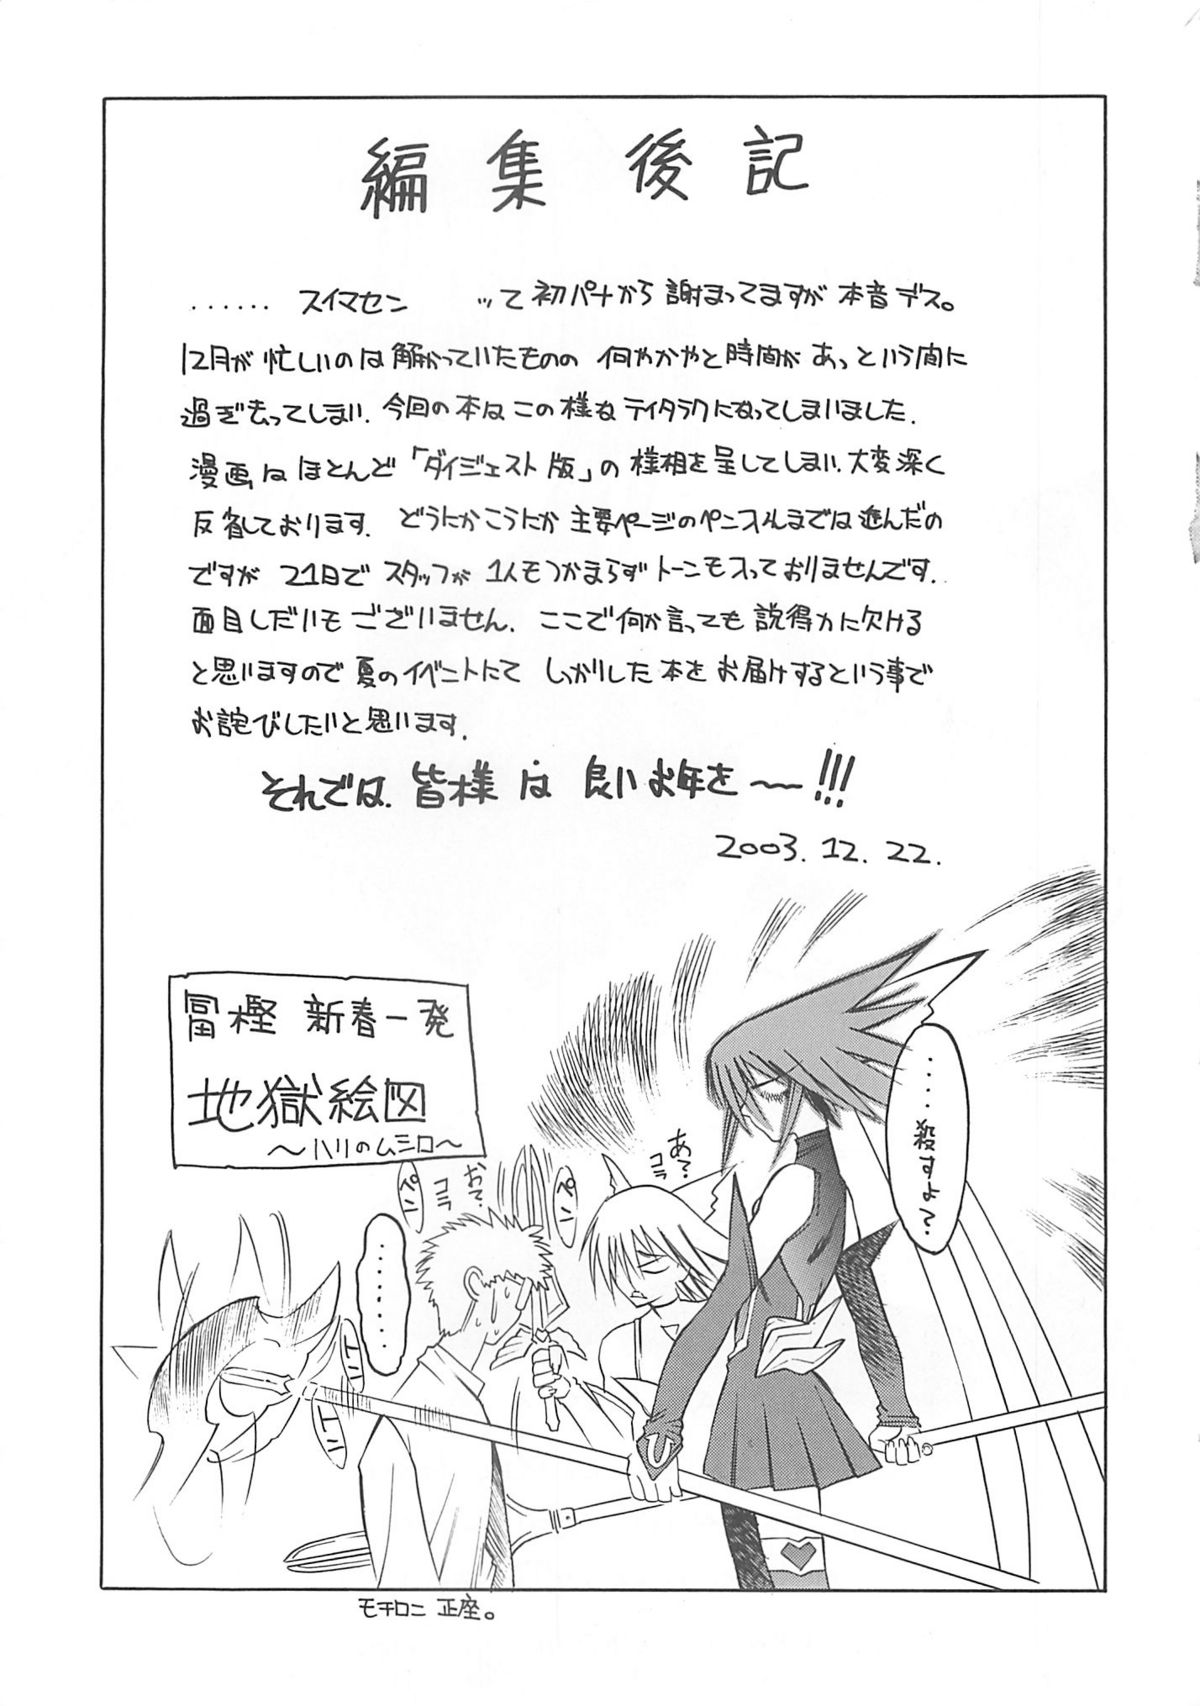 編集後記
...... スイマセン ッて初パナから謝まってますが本音デス。
12月が忙しいのは解かっていたものの 何やかやと時間があっという間に
過ぎ去ってしまい、今回の本はこの様なテイタラクになってしまいました。
漫画はほとんど「ダイジェスト版」の様相を呈してしまい、大変深く
反省しております。どうにかこうにか主要ページのペン入れまでは進んだの
ですが 21日でスタッフが1人もつかまらずトーンも入っておりませんです。
面目しだいもございません。ここで何か言っても説得力に欠ける
と思いますので夏のイベントにて しっかりした本をお届けするという事で
お詫びしたいと思います。
それでは、皆様は良いお年を〜!!!
2003.12.22.
冨樫 新春一発
地獄絵図
〜ハリのムシロ〜
....殺すよ?
あ?コラ
お?コラ
ペン
ペン
......
トン
トン
モチロン 正座。